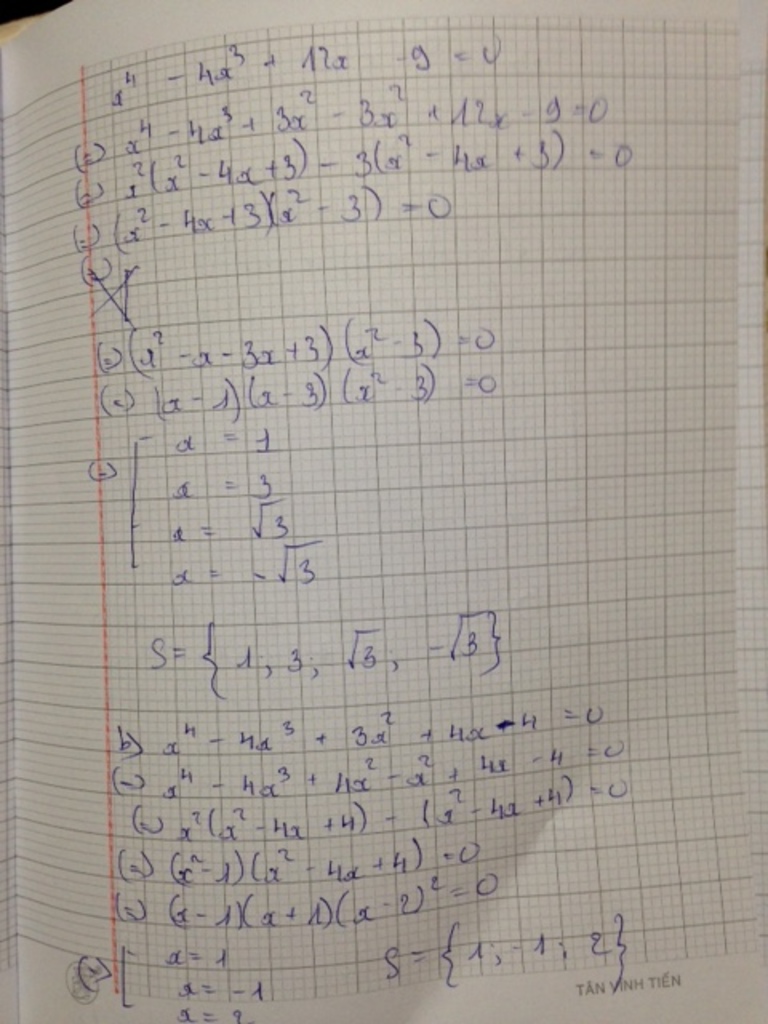 x⁴ - 4x³ + 12x - 9 = 0
(=) x⁴ - 4x³ + 3x² - 3x² + 12x - 9 = 0
(=) x²(x² - 4x + 3) - 3(x² - 4x + 3) = 0
(=) (x² - 4x + 3)(x² - 3) = 0
(=) (x² - x - 3x + 3)(x² - 3) = 0
(=) (x - 1)(x - 3)(x² - 3) = 0
(=) [ x = 1
x = 3
x = √3
x = -√3
S = { 1 ; 3 ; √3 ; -√3 }
b) x⁴ - 4x³ + 3x² + 4x - 4 = 0
(=) x⁴ - 4x³ + 4x² - x² + 4x - 4 = 0
(=) x²(x² - 4x + 4) - (x² - 4x + 4) = 0
(=) (x² - 1)(x² - 4x + 4) = 0
(=) (x - 1)(x + 1)(x - 2)² = 0
(=) [ x = 1 S = { 1 ; -1 ; 2 }
x = -1
x = 2
TÂN VĨNH TIẾN